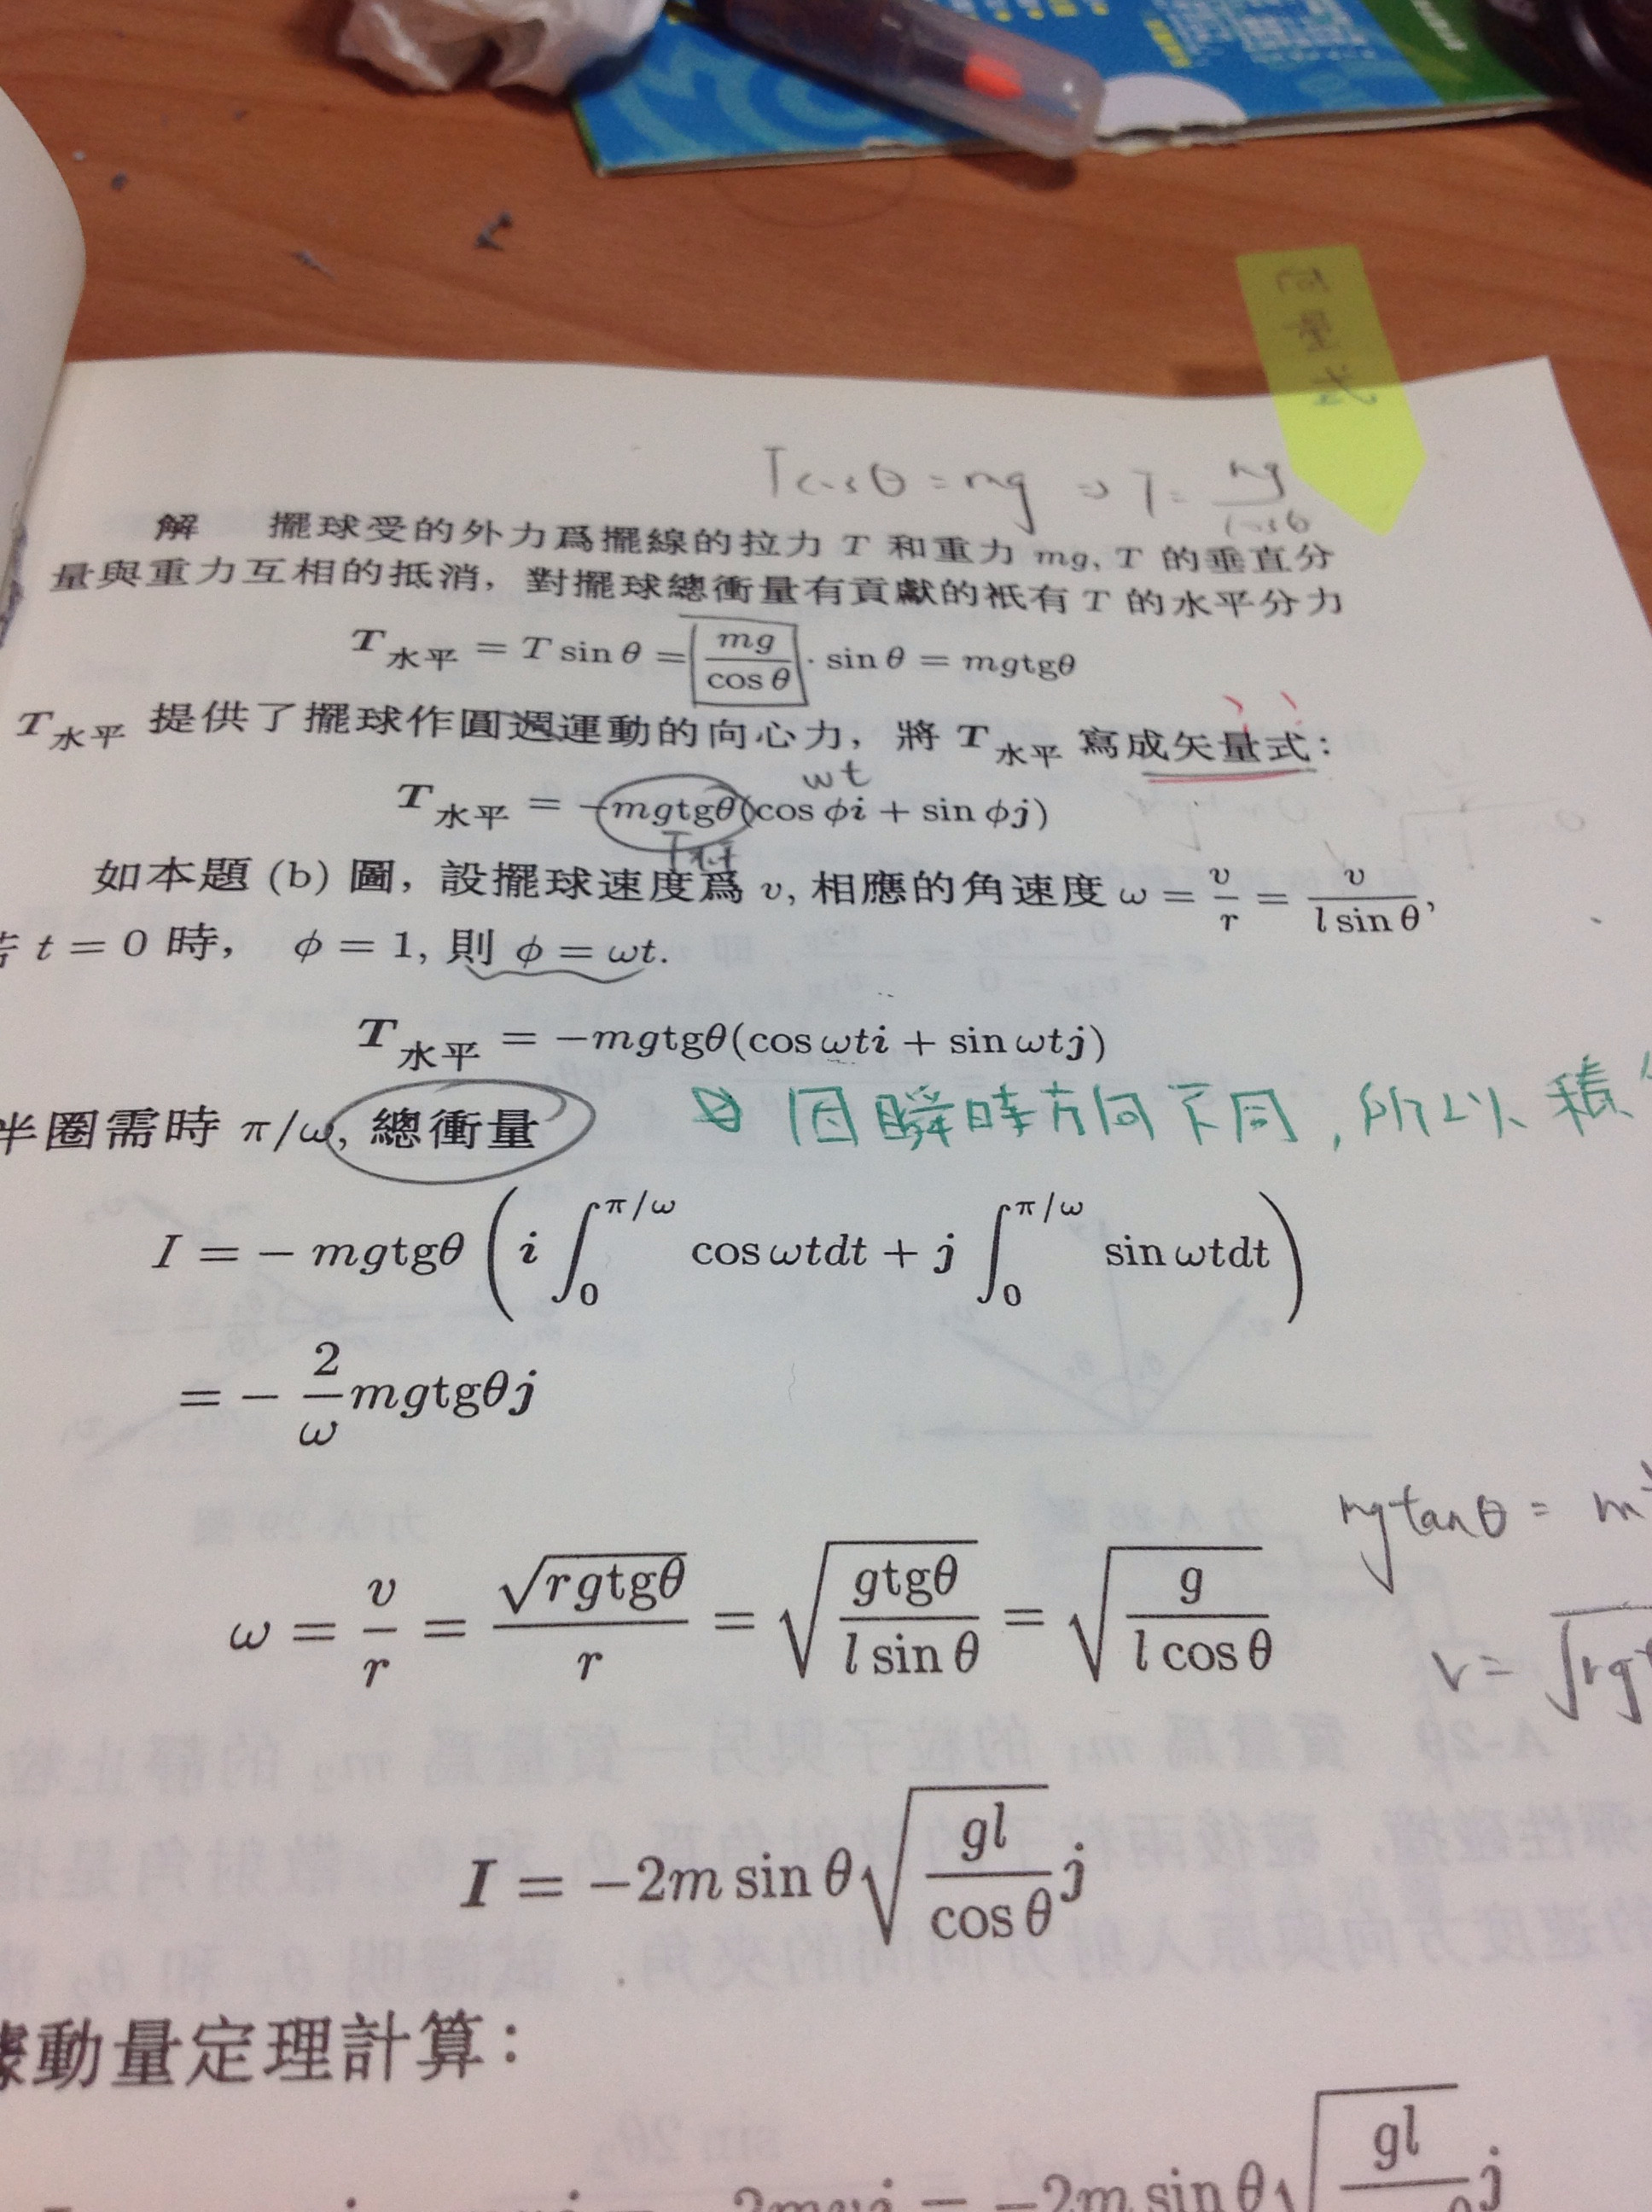 向量法
Tcosθ = mg ⇒ T = mg/cosθ
解 擺球受的外力爲擺線的拉力 T 和重力 mg, T 的垂直分
量與重力互相的抵消, 對擺球總衝量有貢獻的衹有 T 的水平分力
T水平 = T sin θ = mg/cos θ · sin θ = mgtgθ
T水平 提供了擺球作圓週運動的向心力, 將 T水平 寫成矢量式:
wt
T水平 = −mgtgθ(cos ϕi + sin ϕj)
如本題 (b) 圖, 設擺球速度爲 v, 相應的角速度 ω = v/r = v/(l sin θ),
t = 0 時, ϕ = 1, 則 ϕ = ωt.
T水平 = −mgtgθ(cos ωti + sin ωtj)
半圈需時 π/ω, 總衝量
因瞬時方向不同, 所以積
I = − mgtgθ (i ∫₀^{π/ω} cos ωtdt + j ∫₀^{π/ω} sin ωtdt)
= − 2/ω mgtgθj
mgtanθ = m
ω = v/r = √(rgtgθ)/r = √(gtgθ/(l sin θ)) = √(g/(l cos θ))
v = √rg
I = −2m sin θ √(gl/cos θ) j
據動量定理計算:
−2m sin θ √(gl
j